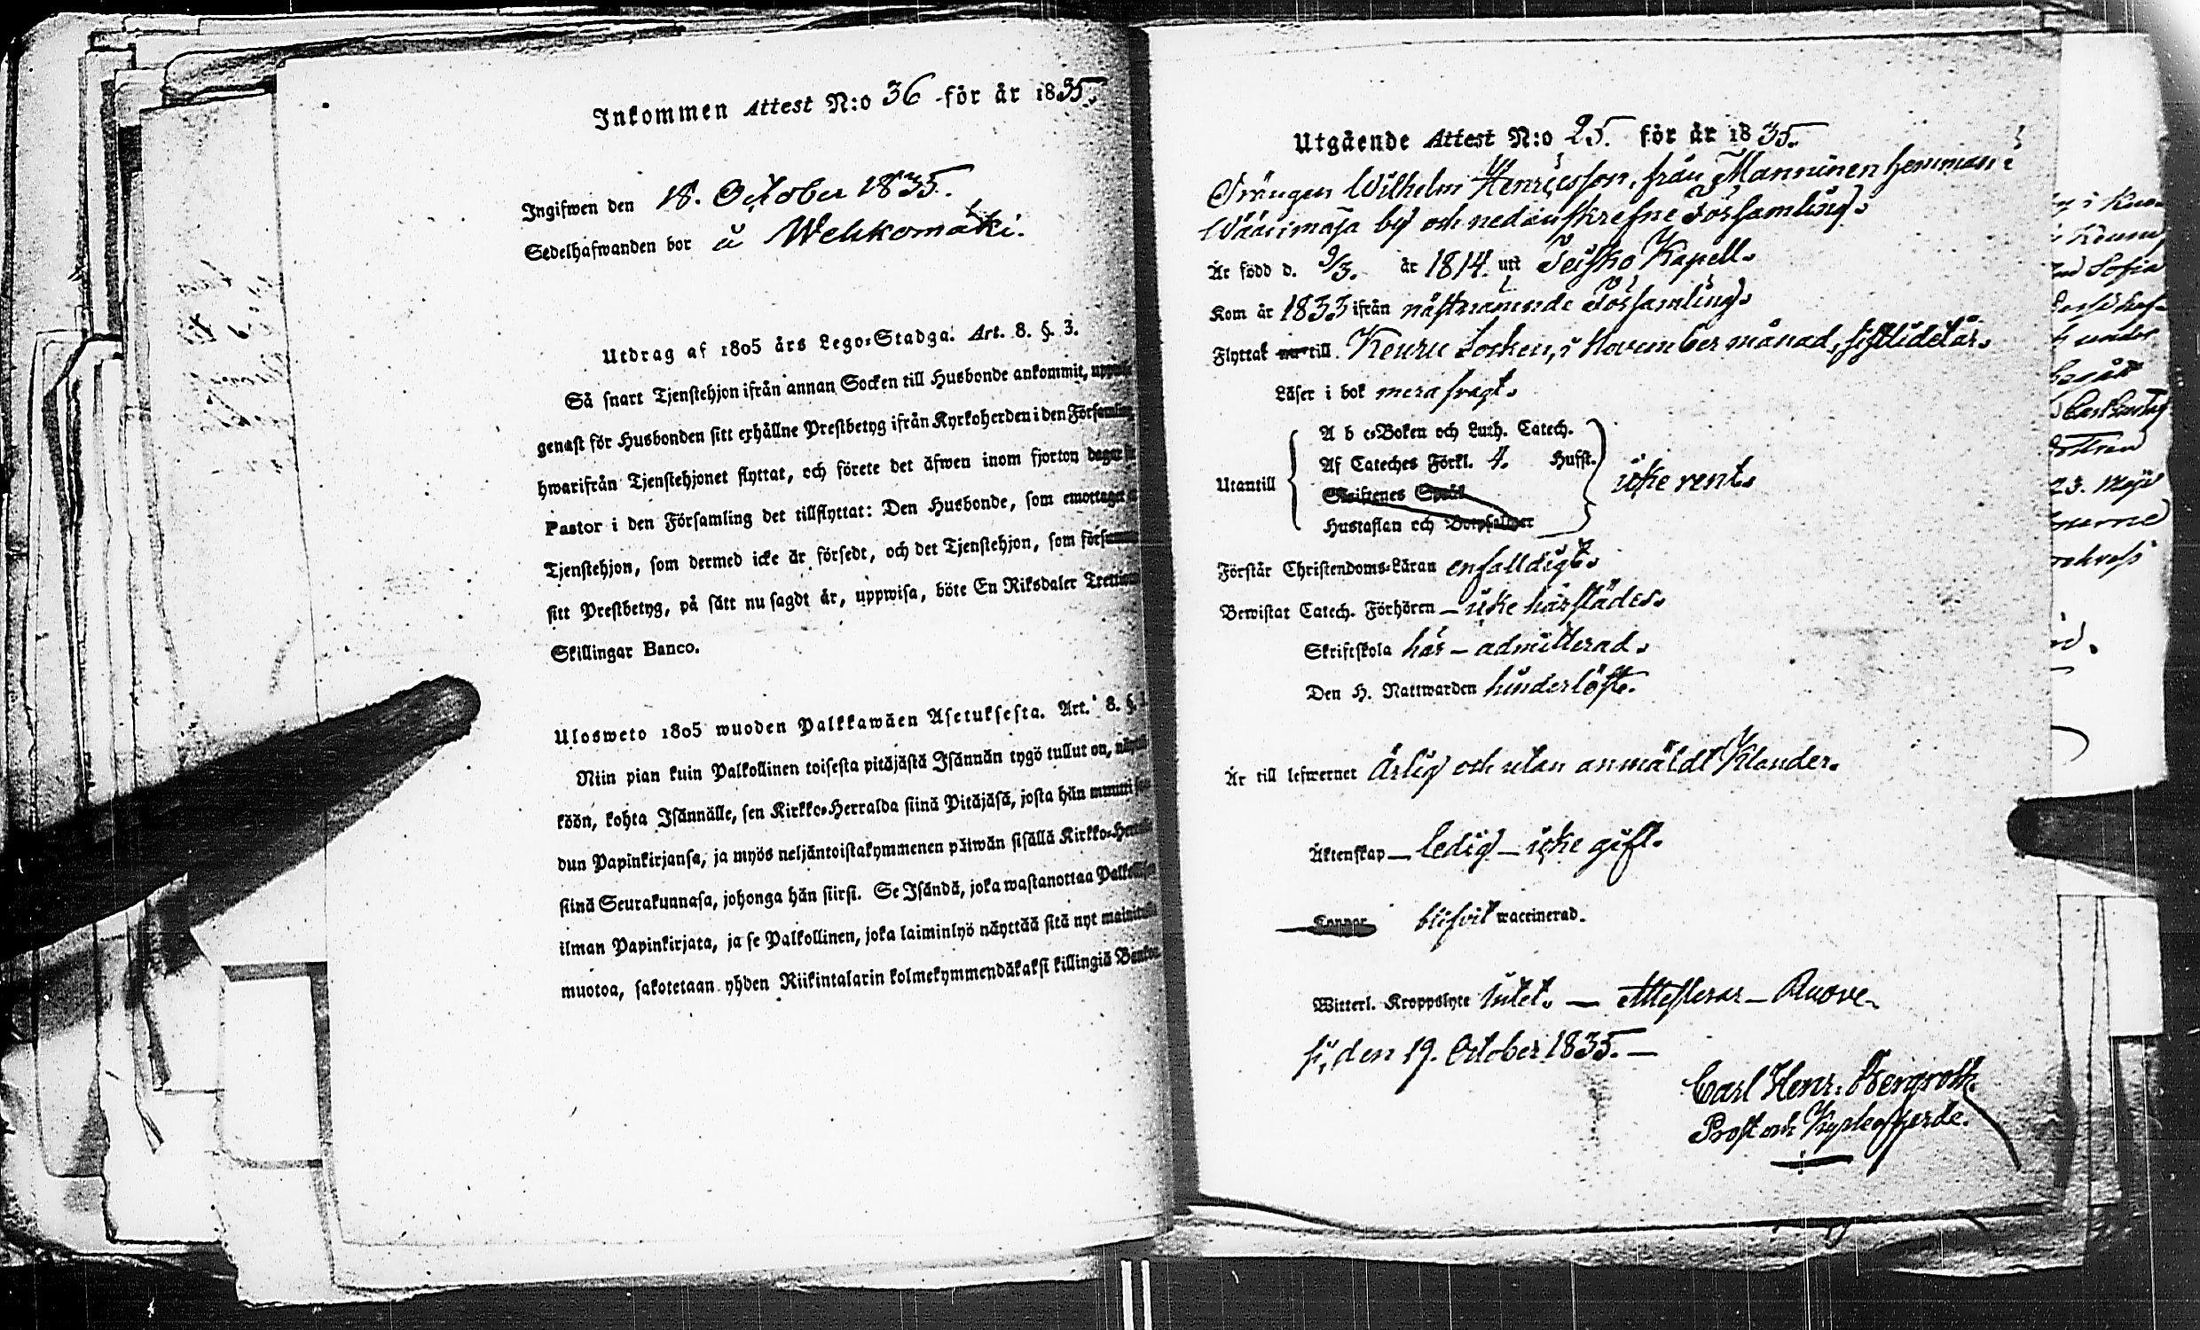 Inkommen Attest N:o 36 för år 1835.
Ingifwen den 18. October 1835.
Sedelhafwanden bor å Wehkomäki.
Utdrag af 1805 års Lego-Stadga. Art. 8. §. 3.
Så snart Tjenstehjon ifrån annan Socken till Husbonde ankommit,
genast för Husbonden sitt erhållne Prestbetyg ifrån Kyrkoherden i den Församling
hwarifrån Tjenstehjonet flyttat, och förete det äfwen inom fjorton dagar
Pastor i den Församling det tillflyttat: Den Husbonde, som emottager
Tjenstehjon, som dermed icke är försedt, och det Tjenstehjon, som
sitt Prestbetyg, på sätt nu sagdt är, uppwisa, böte En Riksdaler
Skillingar Banco.
Ulosweto 1805 wuoden Palkkawäen Asetuksesta. Art. 8. §.
Niin pian kuin Palkollinen toisesta pitäjästä Isännän tygö tullut on,
köön, kohta Isännälle, sen Kirkko-Herralda siinä Pitäjäsä, josta hän muutti
dun Papinkirjansa, ja myös neljäntoistakymmenen päiwän sisällä Kirkko-
siinä Seurakunnasa, johonga hän siirsi. Se Isändä, joka wastanottaa
ilman Papinkirjata, ja se Palkollinen, joka laiminlyö näyttää sitä nyt
muotoa, sakotetaan yhden Riikintalarin kolmekymmendäkaksi killingiä
Utgående Attest N:o 25. för år 1835.
Drängen Wilhelm Henricsson, från Manninen hemman i
by och nedanskrefne Församling.
Är född d. 9/3. år 1814. uti Teisko Kapell.
Kom år 1833 ifrån nästnämnde Församling.
Flyttat till Keuru Socken, i November månad, sistlidet år.
Läser i bok mera svagt.
A b c-Boken och Luth. Catech.
Af Cateches Förkl. 4. Hufst.
Utantill icke rent.
Skriftenes Språk
Hustaflan och Botpsalmer
Förstår Christendoms-Läran enfalldigt.
Bewistat Catech. Förhören – icke härstädes.
Skriftskola här – admitterad.
Den H. Nattwarden hinderlöst.
Är till lefwernet Ärlig och utan anmäldt Klander.
Äktenskap – ledig – icke gift.
Koppor blifvit waccinerad.
Witterl. Kroppslyte Intet. – Attesterar – Ruove-
si, den 19. October 1835. –
Carl Henr. Bergroth.
Prost och Kyrkoherde.